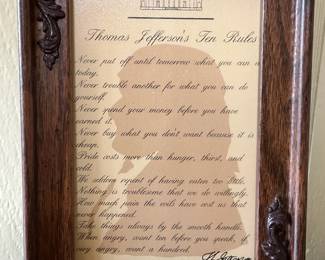 Thomas Jefferson's Ten Rules
Never put off until tomorrow what you can
today.
Never trouble another for what you can do
yourself.
Never spend your money before you have
earned it.
Never buy what you don't want because it is
cheap.
Pride costs more than hunger, thirst, and
cold.
We seldom repent of having eaten too little.
Nothing is troublesome that we do willingly.
How much pain the evils have cost us that
never happened.
Take things always by the smooth handle.
When angry, count ten before you speak, if
very angry, count a hundred.